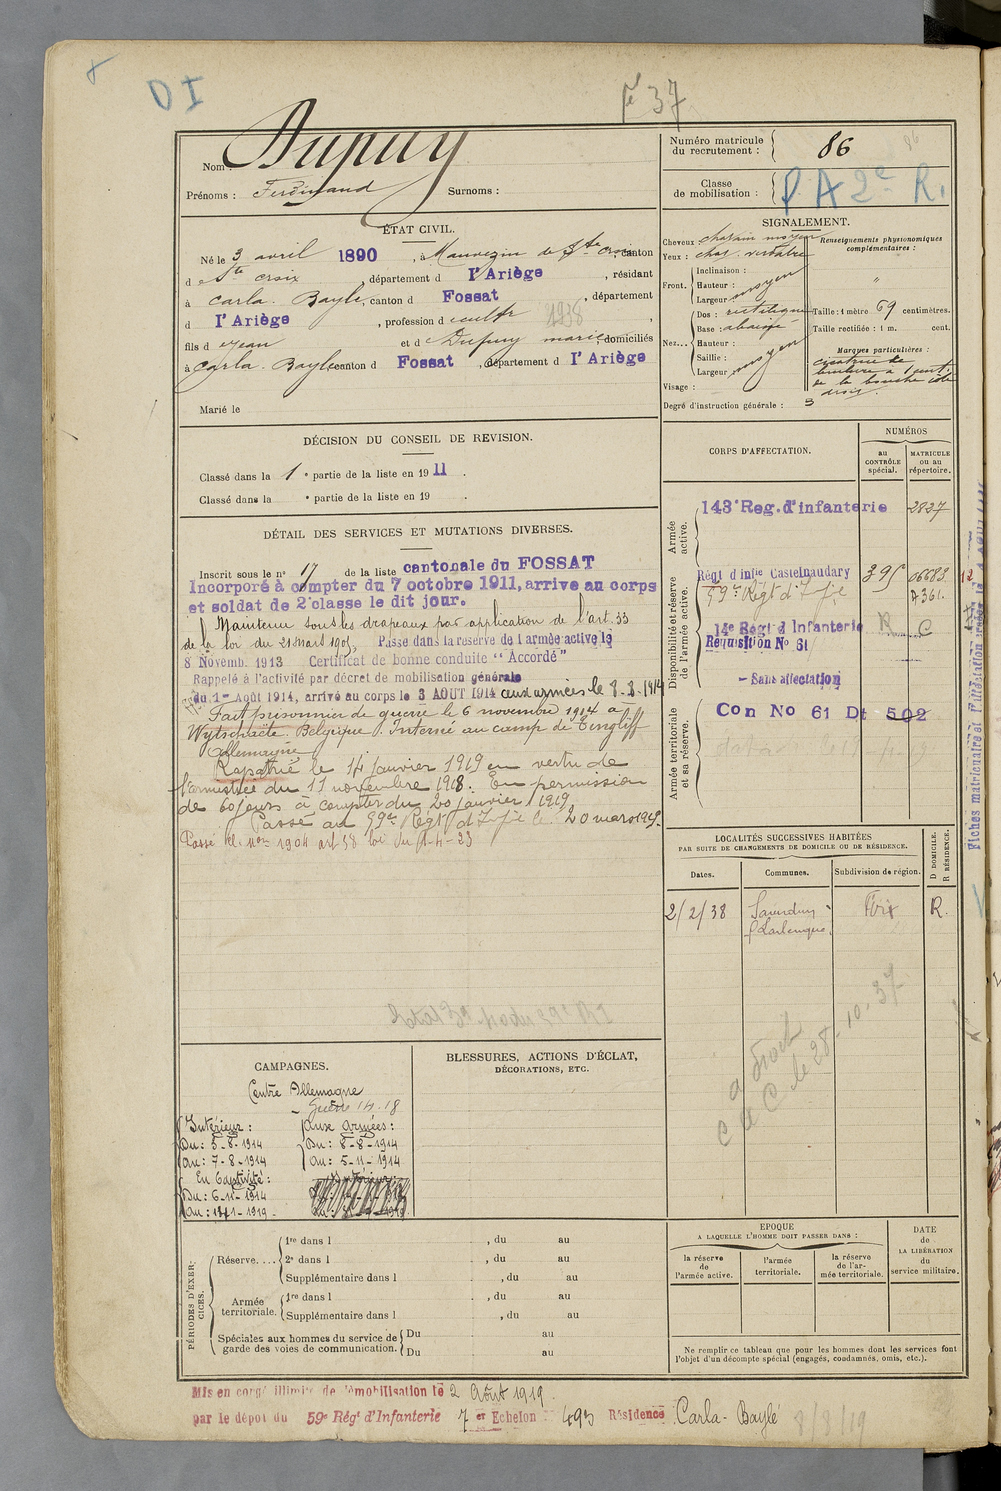 D I
fé 37
Nom : Dupuy
Prénoms : Ferdinand Surnoms :
Numéro matricule du recrutement : 86
86
Classe de mobilisation : P A 2e R.
ÉTAT CIVIL.
Né le 3 avril 1890, à Mauvezin de Ste croix canton
d Ste croix, département d l'Ariège, résidant
à Carla-Bayle, canton d Fossat, département
d l'Ariège, profession d cultr 1938,
fils d Jean et d Dupuy marie domiciliés
à Carla-Bayle canton d Fossat, département d l'Ariège
Marié le
SIGNALEMENT.
Cheveux châtain moyen
Yeux : chat. verdâtre
Renseignements physionomiques complémentaires :
"
Front. Inclinaison :
Hauteur :
Largeur moyen
Nez... Dos : rectiligne
Base : abaissé
Hauteur :
Saillie :
Largeur moyen
Visage :
Taille : 1 mètre 69 centimètres.
Taille rectifiée : 1 m. cent.
Marques particulières :
cicatrice de
brulure à 1 cent.
de la bouche côté
droit.
Degré d'instruction générale : 3
DÉCISION DU CONSEIL DE REVISION.
Classé dans la 1e partie de la liste en 1911.
Classé dans la e partie de la liste en 19 .
DÉTAIL DES SERVICES ET MUTATIONS DIVERSES.
Inscrit sous le n° 17 de la liste cantonale du FOSSAT
Incorporé à compter du 7 octobre 1911, arrive au corps
et soldat de 2e classe le dit jour.
Maintenu sous les drapeaux par application de l'art. 33
de la loi du 21 Mars 1905, Passé dans la réserve de l'armée active le
8 Novemb. 1913 Certificat de bonne conduite "Accordé"
Rappelé à l'activité par décret de mobilisation générale
du 1er Août 1914, arrivé au corps le 3 AOUT 1914 aux armées le 8-8-1914
Fait prisonnier de guerre le 6 novembre 1914 à
Wytschaete. Belgique. Interné au camp de Tingliff
Allemagne
Rapatrié le 14 Janvier 1919 en vertu de
l'armistice du 11 novembre 1918. En permission
de 60 jours à compter du 20 Janvier 1919
Passé au 59e Régt d'Infie le 20 mars 1919.
Passé cl. 1904 art 58 loi du 1-4-23
CORPS D'AFFECTATION.
NUMÉROS
au CONTRÔLE spécial.
MATRICULE ou au répertoire.
Armée active.
143e Reg. d'infanterie 2827
Disponibilité et réserve de l'armée active.
Régt d'infie Castelnaudary 395 06683 12
59e Régt d'Infie A 361.
14e Régt d'Infanterie R C
Requisition No 61
- Sans affectation
Armée territoriale et sa réserve.
Con No 61 Dt 502
Fiches matriculaire et
LOCALITÉS SUCCESSIVES HABITÉES
PAR SUITE DE CHANGEMENTS DE DOMICILE OU DE RÉSIDENCE.
Dates. Communes. Subdivision de région. D DOMICILE. R RÉSIDENCE.
2/2/38 Saverdun Foix R.
C à D
le 28-10-37
CAMPAGNES.
Contre Allemagne
Guerre 14.18
Intérieur : Aux Armées :
Du : 3-8-1914 Du : 8-8-1914
Au : 7-8-1914 Au : 5-11-1914
En Captivité : Intérieur :
Du : 6-11-1914
Au : 14-1-1919.
BLESSURES, ACTIONS D'ÉCLAT,
DÉCORATIONS, ETC.
PÉRIODES D'EXERCICES.
Réserve.... 1re dans l , du au
2e dans l , du au
Supplémentaire dans l , du au
Armée territoriale. 1re dans l , du au
Supplémentaire dans l , du au
Spéciales aux hommes du service de garde des voies de communication. Du au
Du au
EPOQUE
A LAQUELLE L'HOMME DOIT PASSER DANS :
la réserve de l'armée active.
l'armée territoriale.
la réserve de l'armée territoriale.
DATE de LA LIBÉRATION du service militaire.
Ne remplir ce tableau que pour les hommes dont les services font
l'objet d'un décompte spécial (engagés, condamnés, omis, etc.).
Mis en congé illimité de démobilisation le 2 Août 1919.
par le dépôt du 59e Régt d'Infanterie 7 er Echelon 493 Résidence Carla-Bayle
8/8/19